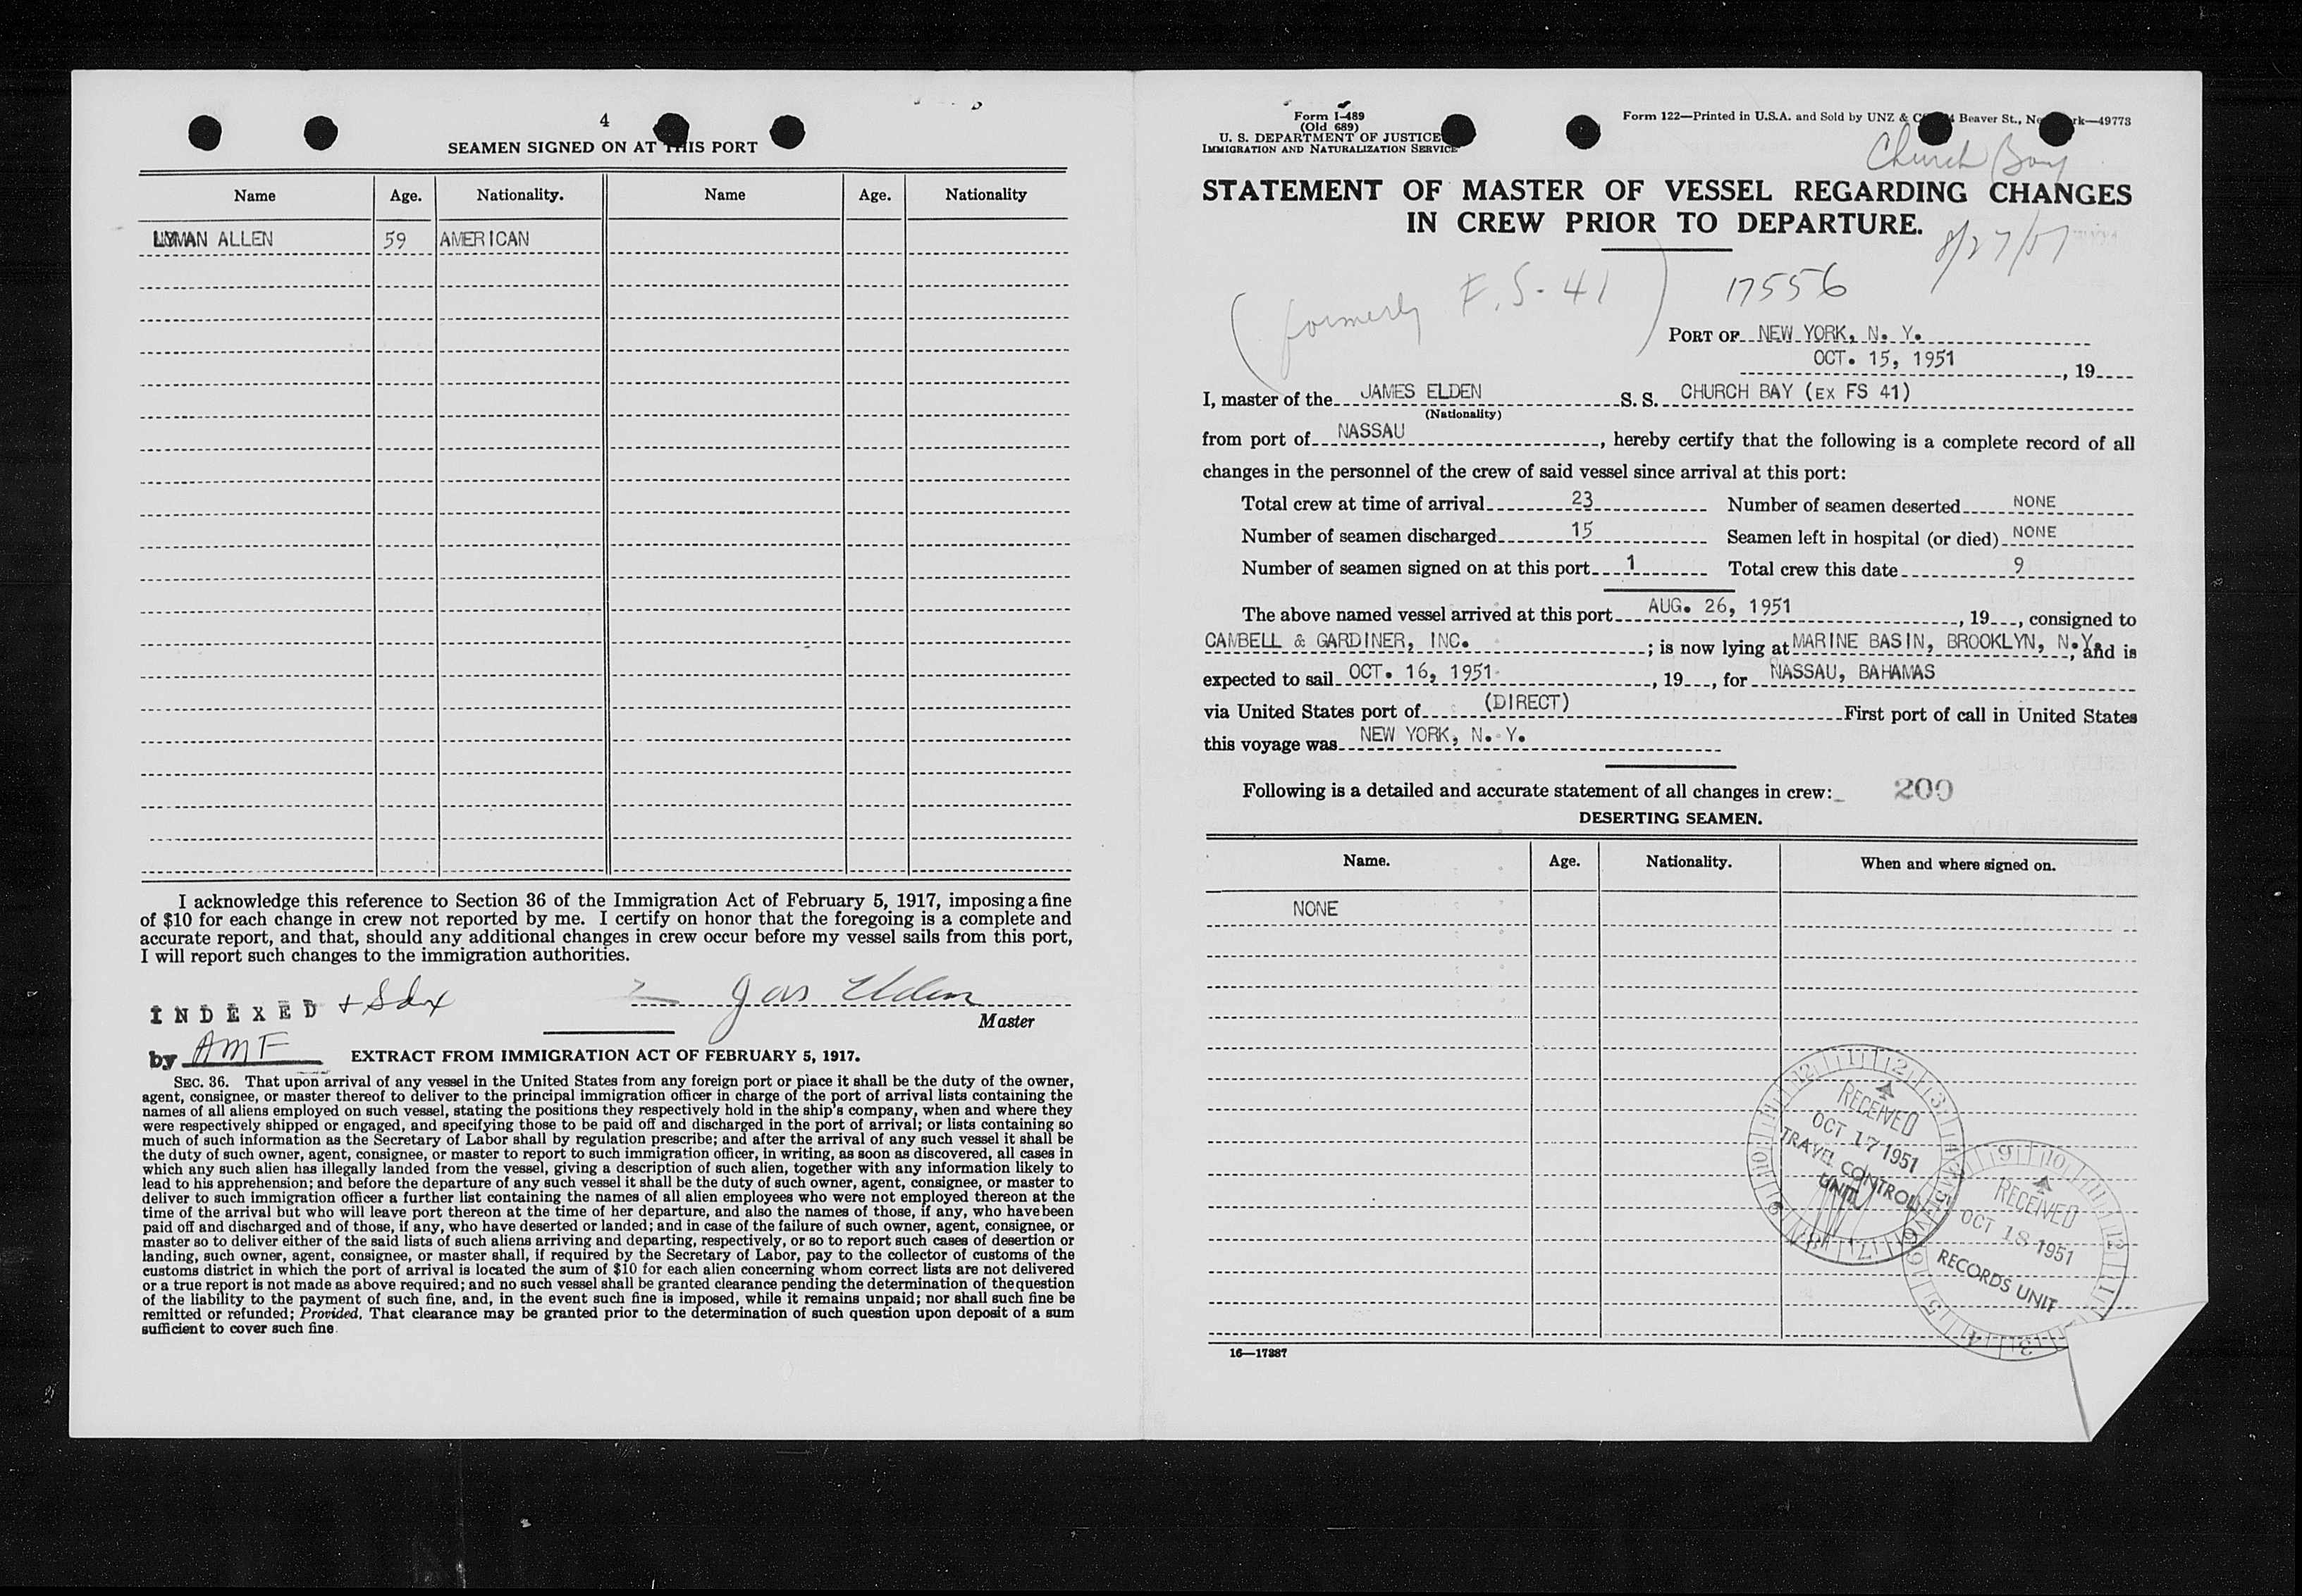 4
SEAMEN SIGNED ON AT THIS PORT
Name Age. Nationality. Name Age. Nationality
LYMAN ALLEN 59 AMERICAN
I acknowledge this reference to Section 36 of the Immigration Act of February 5, 1917, imposing a fine
of $10 for each change in crew not reported by me. I certify on honor that the foregoing is a complete and
accurate report, and that, should any additional changes in crew occur before my vessel sails from this port,
I will report such changes to the immigration authorities.
Jas Elden
Master
INDEXED
by AMF
EXTRACT FROM IMMIGRATION ACT OF FEBRUARY 5, 1917.
SEC. 36. That upon arrival of any vessel in the United States from any foreign port or place it shall be the duty of the owner,
agent, consignee, or master thereof to deliver to the principal immigration officer in charge of the port of arrival lists containing the
names of all aliens employed on such vessel, stating the positions they respectively hold in the ship's company, when and where they
were respectively shipped or engaged, and specifying those to be paid off and discharged in the port of arrival; or lists containing so
much of such information as the Secretary of Labor shall by regulation prescribe; and after the arrival of any such vessel it shall be
the duty of such owner, agent, consignee, or master to report to such immigration officer, in writing, as soon as discovered, all cases in
which any such alien has illegally landed from the vessel, giving a description of such alien, together with any information likely to
lead to his apprehension; and before the departure of any such vessel it shall be the duty of such owner, agent, consignee, or master to
deliver to such immigration officer a further list containing the names of all alien employees who were not employed thereon at the
time of the arrival but who will leave port thereon at the time of her departure, and also the names of those, if any, who have been
paid off and discharged and of those, if any, who have deserted or landed; and in case of the failure of such owner, agent, consignee, or
master so to deliver either of the said lists of such aliens arriving and departing, respectively, or so to report such cases of desertion or
landing, such owner, agent, consignee, or master shall, if required by the Secretary of Labor, pay to the collector of customs of the
customs district in which the port of arrival is located the sum of $10 for each alien concerning whom correct lists are not delivered
or a true report is not made as above required; and no such vessel shall be granted clearance pending the determination of the question
of the liability to the payment of such fine, and, in the event such fine is imposed, while it remains unpaid; nor shall such fine be
remitted or refunded; Provided, That clearance may be granted prior to the determination of such question upon deposit of a sum
sufficient to cover such fine.
Form I-489
(Old 689)
U. S. DEPARTMENT OF JUSTICE
IMMIGRATION AND NATURALIZATION SERVICE
Form 122—Printed in U.S.A. and Sold by UNZ & C Beaver St., Ne rk—49773
Church Bay
STATEMENT OF MASTER OF VESSEL REGARDING CHANGES
IN CREW PRIOR TO DEPARTURE.
8/27/51
(formerly F.S-41)
17556
PORT OF NEW YORK, N. Y.
OCT. 15, 1951, 19
I, master of the JAMES ELDEN S. S. CHURCH BAY (EX FS 41)
(Nationality)
from port of NASSAU, hereby certify that the following is a complete record of all
changes in the personnel of the crew of said vessel since arrival at this port:
Total crew at time of arrival 23 Number of seamen deserted NONE
Number of seamen discharged 15 Seamen left in hospital (or died) NONE
Number of seamen signed on at this port 1 Total crew this date 9
The above named vessel arrived at this port AUG. 26, 1951, 19, consigned to
CAMBELL & GARDINER, INC.; is now lying at MARINE BASIN, BROOKLYN, N.Y., and is
expected to sail OCT. 16, 1951, 19, for NASSAU, BAHAMAS
via United States port of (DIRECT) First port of call in United States
this voyage was NEW YORK, N. Y.
Following is a detailed and accurate statement of all changes in crew:
200
DESERTING SEAMEN.
Name. Age. Nationality. When and where signed on.
NONE
RECEIVED
OCT 17 1951
TRAVEL CONTROL
UNIT
RECEIVED
OCT 18 1951
RECORDS UNIT
16—17387